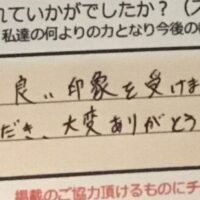 れていかがでしたか？（ス
私達の何よりの力となり今後の
良い印象を受けま
だき、大変ありがとう
掲載のご協力頂けるものにチ